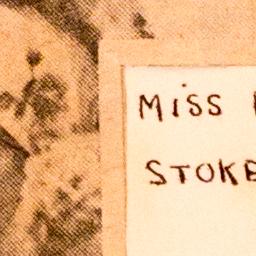 MISS
STOKE